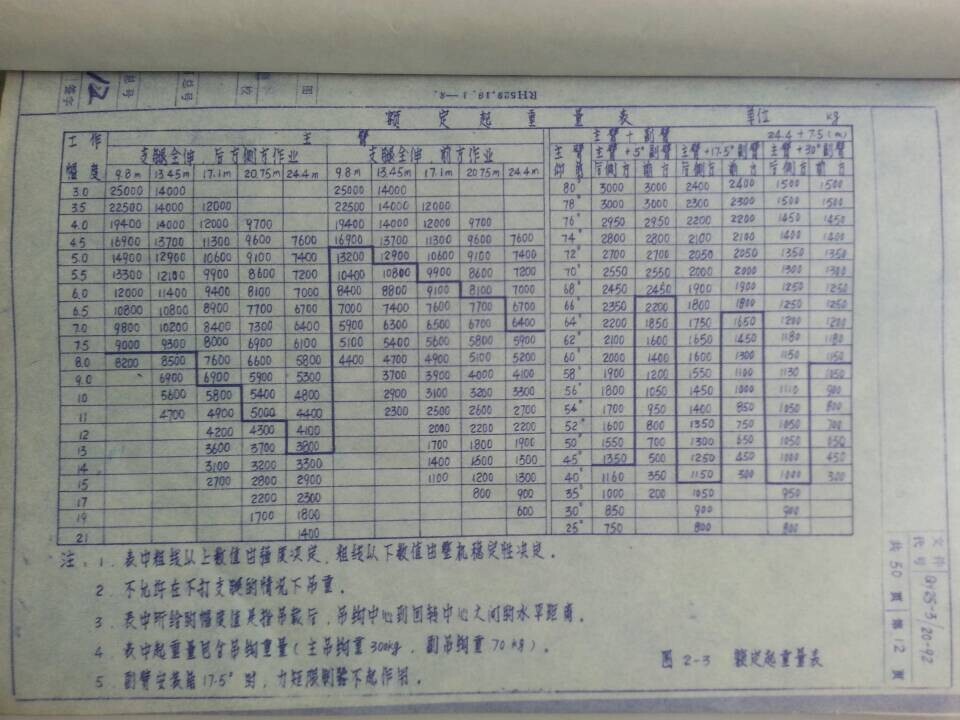 RH529.19.1—8.
额定起重量表 单位 kg
工作幅度 主臂 主臂+副臂 24.4+7.5(m)
支腿全伸,后方侧方作业 支腿全伸,前方作业 主臂仰角 主臂+5°副臂 主臂+17.5°副臂 主臂+30°副臂
9.8m 13.45m 17.1m 20.75m 24.4m 9.8m 13.45m 17.1m 20.75m 24.4m 后侧方 前方 后侧方 前方 后侧方 前方
3.0 25000 14000 25000 14000 80° 3000 3000 2400 2400 1500 1500
3.5 22500 14000 12000 22500 14000 12000 78° 3000 3000 2300 2300 1500 1500
4.0 19400 14000 12000 9700 19400 14000 12000 9700 76° 2950 2950 2200 2200 1450 1450
4.5 16900 13700 11300 9600 7600 16900 13700 11300 9600 7600 74° 2800 2800 2100 2100 1400 1400
5.0 14900 12900 10600 9100 7400 13200 12900 10600 9100 7400 72° 2700 2700 2050 2050 1350 1350
5.5 13300 12100 9900 8600 7200 10400 10800 9900 8600 7200 70° 2550 2550 2000 2000 1300 1300
6.0 12000 11400 9400 8100 7000 8400 8800 9100 8100 7000 68° 2450 2450 1900 1900 1250 1250
6.5 10800 10800 8900 7700 6700 7000 7400 7600 7700 6700 66° 2350 2200 1800 1800 1250 1250
7.0 9800 10200 8400 7300 6400 5900 6300 6500 6700 6400 64° 2200 1850 1730 1650 1200 1200
7.5 9000 9300 8000 6900 6100 5100 5400 5600 5800 5900 62° 2100 1600 1650 1450 1180 1180
8.0 8200 8500 7600 6600 5800 4400 4700 4900 5100 5200 60° 2000 1400 1600 1300 1150 1150
9.0 6900 6900 5900 5300 3700 3900 4000 4100 58° 1900 1200 1550 1100 1130 1050
10 5600 5800 5400 4800 2900 3100 3200 3300 56° 1800 1050 1450 1000 1110 900
11 4700 4900 5000 4400 2300 2500 2600 2700 54° 1700 950 1400 850 1050 800
12 4200 4300 4100 2000 2200 2200 52° 1600 800 1350 750 1050 700
13 3600 3700 3800 1700 1800 1900 50° 1550 700 1300 650 1050 650
14 3100 3200 3300 1400 1500 1500 45° 1350 500 1250 450 1000 450
15 2700 2800 2900 1100 1200 1300 40° 1160 350 1150 300 1000 300
17 2200 2300 800 900 35° 1000 200 1050 950
19 1700 1800 600 30° 850 900 900
21 1400 25° 750 800 800
注:1. 表中粗线以上数值由强度决定,粗线以下数值由整机稳定性决定。
2. 不允许在不打支腿的情况下吊重。
3. 表中所给的幅度值是指吊载后,吊钩中心到回转中心之间的水平距离。
4. 表中起重量包含吊钩重量(主吊钩重300kg,副吊钩重70kg)。
5. 副臂安装角17.5°时,力矩限制器不起作用。
图 2-3 额定起重量表
文件代号 QY25-3/20-92
共 50 页 第 12 页